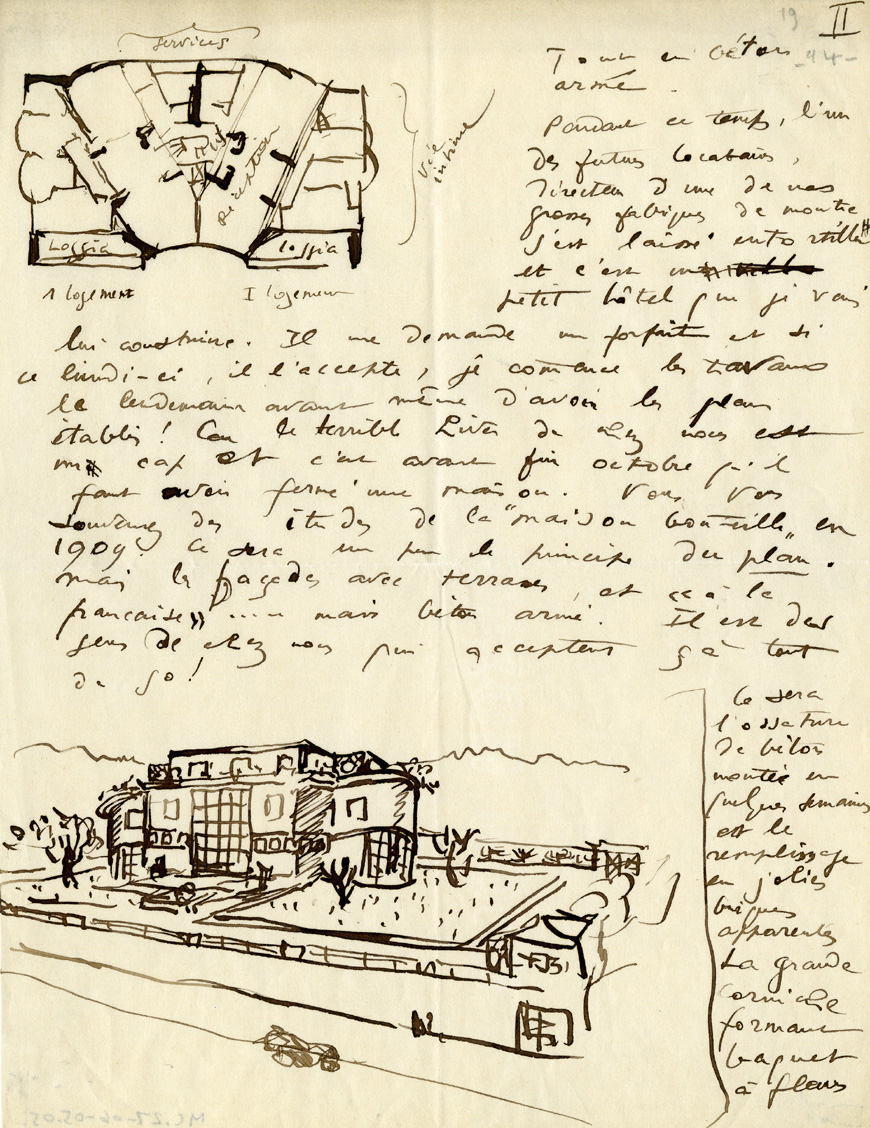 II
19
-44-
services
Tout en béton
armé.
Pendant ce temps, l'un
des futurs locataires,
Directeur d'une de nos
grosses fabriques de montre
s'est laissé entortiller
et c'est un
petit hôtel que je vais
Réception
vie
intime
Loggia
Loggia
1 logement
I logement
lui construire. Il me demande un forfait et si
ce lundi-ci, il l'accepte, je commence les travaux
le lendemain avant même d'avoir les plans
établis! Car le terrible hiver de chez nous est
un cap et c'est avant fin octobre qu'il
faut avoir fermé une maison. Vous vous
souvenez des études de la "maison bouteille" en
1909? Ce sera un peu le principe du plan.
mais les façades avec terrasses, et ça à la
française» .... mais béton armé. Il est des
gens de chez nous qui acceptent ça tout
de go!
Ce sera
l'ossature
de béton
montée en
quelques semaines
et le
remplissage
en jolies
briques
apparentes
La grande
corniche
formant
baquet
à fleurs
MC.27-06-05.05.